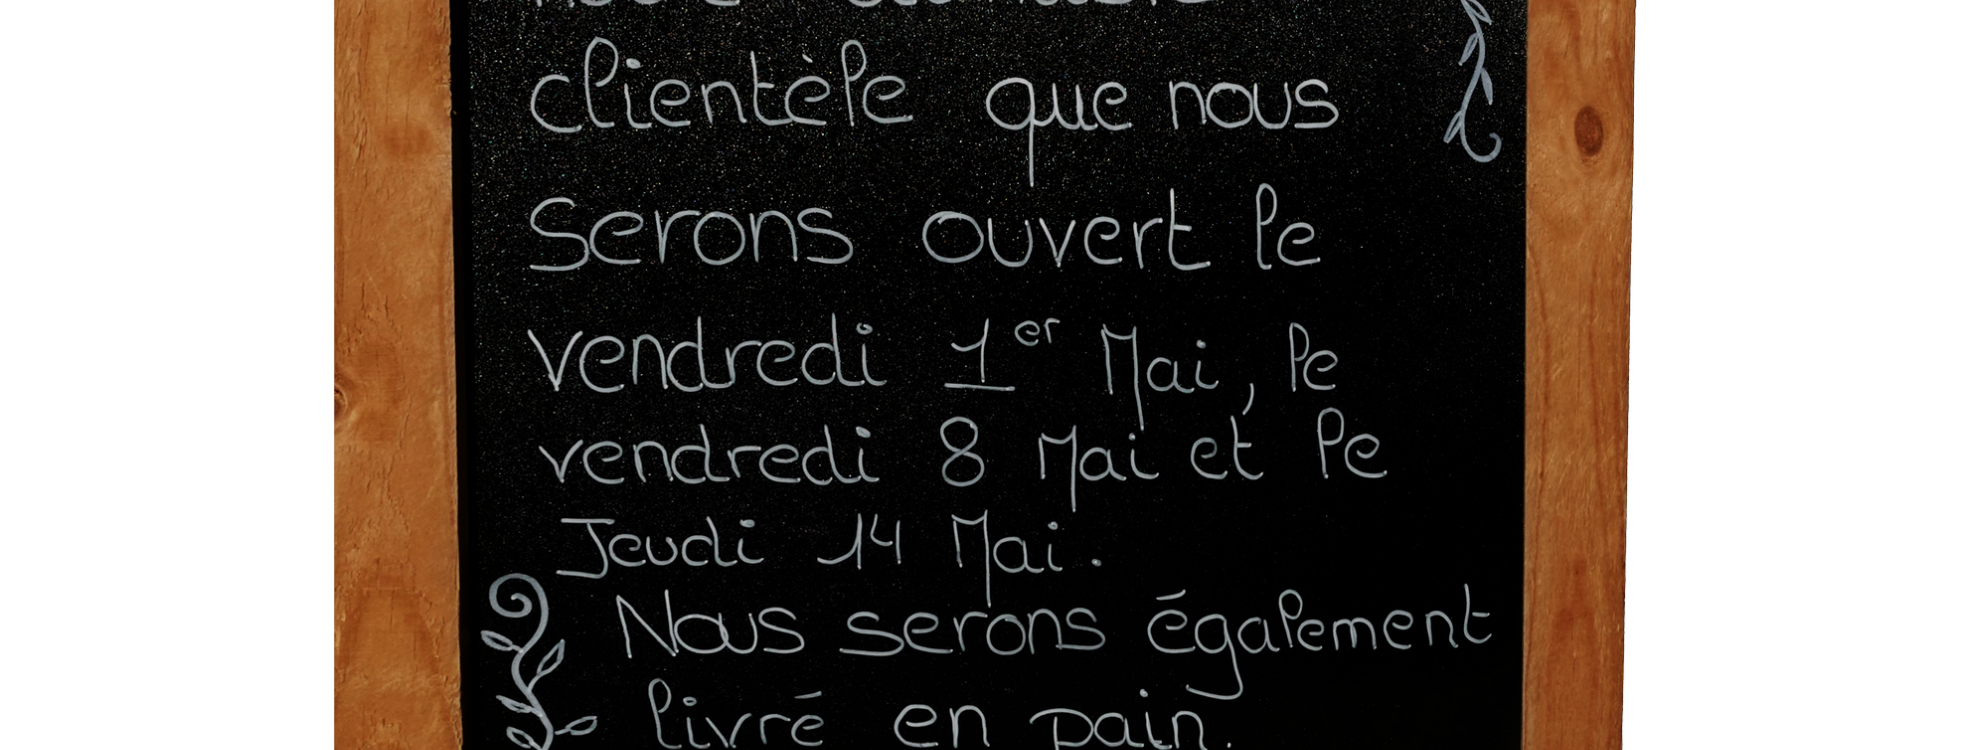 clientèle que nous
serons ouvert le
vendredi 1er Mai, le
vendredi 8 Mai et le
Jeudi 14 Mai.
Nous serons également
livré en pain.